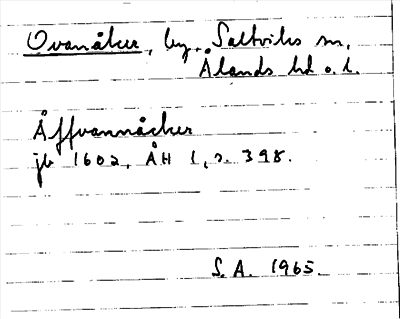 Ovanåker, by, Saltviks sn,
Ålands hd o. l.
Åffvannåcker
jb 1602, ÅH 1, s. 398.
S. A. 1965.